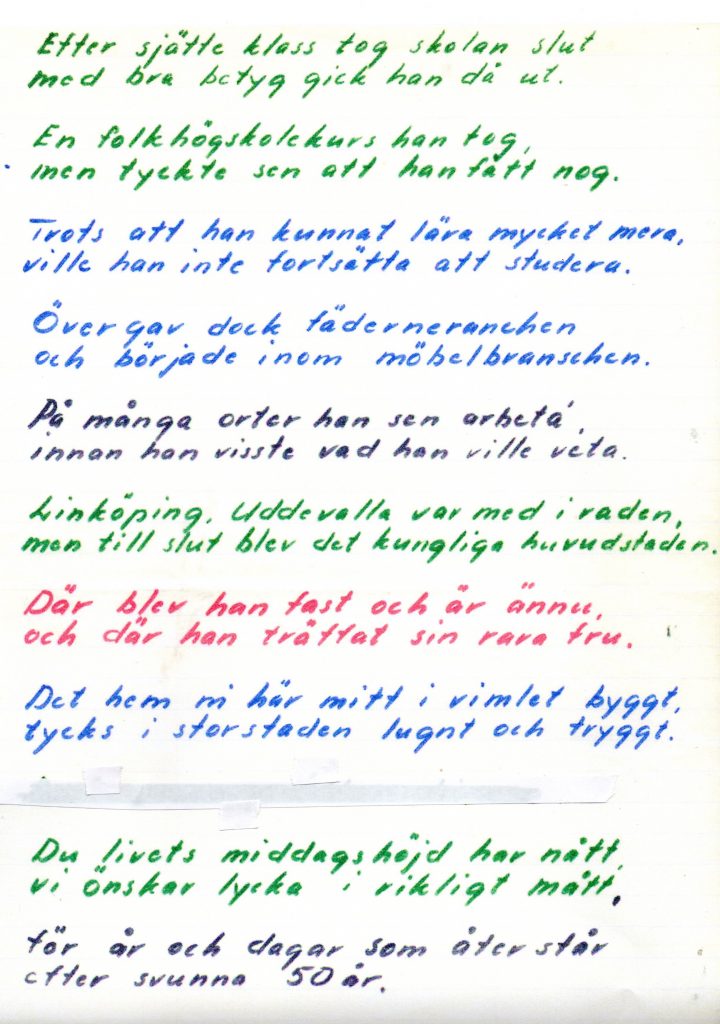 Efter sjätte klass tog skolan slut
med bra betyg gick han då ut.
En folkhögskolekurs han tog,
men tyckte sen att han fått nog.
Trots att han kunnat lära mycket mera,
ville han inte fortsätta att studera.
Övergav dock fäderneranchen
och började inom möbelbranschen.
På många orter han sen arbeta',
innan han visste vad han ville veta.
Linköping, Uddevalla var med i raden,
men till slut blev det kungliga huvudstaden.
Där blev han fast och är ännu,
och där han träffat sin rara fru.
Det hem ni här mitt i vimlet byggt,
tycks i storstaden lugnt och tryggt.
Du livets middagshöjd har nått,
vi önskar lycka i rikligt mått,
för år och dagar som återstår
efter svunna 50 år.